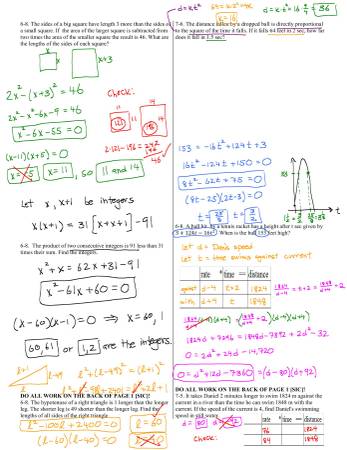 d=k·t²
64=k·2²=4k
k=16
d=k·t²=16·9/4=36
6-8. The sides of a big square have length 3 more than the sides of
a small square. If the area of the larger square is subtracted from
two times the area of the smaller square the result is 46. What are
the lengths of the sides of each square?
x
x+3
2x²-(x+3)²=46
2x²-x²-6x-9=46
x²-6x-55=0
(x-11)(x+5)=0
x=-5
x=11, so 11 and 14
Check:
11
11
121
14
14
2·121-196=242
46✓
let x, x+1 be integers
x(x+1)=31[x+x+1]-91
6-8. The product of two consecutive integers is 91 less than 31
times their sum. Find the integers.
x²+x=62x+31-91
x²-61x+60=0
(x-60)(x-1)=0 ⇒ x=60,1
60,61 or 1,2 are the integers
l+1
l-49
l
l²+(l-49)²=(l+1)²
l²-98l+2401=2l+1
DO ALL WORK ON THE BACK OF PAGE 1 [SIC]!
6-8. The hypotenuse of a right triangle is 1 longer than the longer
leg. The shorter leg is 49 shorter than the longer leg. Find the
lengths of all sides of the right triangle.
l²-100l+2400=0
(l-60)(l-40)=0
l=60
7-8. The distance fallen by a dropped ball is directly proportional
to the square of the time it falls. If it falls 64 feet in 2 sec, how far
does it fall in 1.5 sec?
153=-16t²+124t+3
16t²-124t+150=0
8t²-62t+75=0
(8t-25)(2t-3)=0
t=25/8
t=3/2
6-8. A ball hit by a tennis racket has a height after t sec given by
3+124t-16t². When is the ball 153 feet high?
let d=Dan's speed
let t=time swims against current
rate * time = distance
against d-4 t+2 1824
with d+4 t 1848
1824/(d-4)=t+2=1848/(d+4)+2
1824d+7296=1848d-7392+2d²-32
0=2d²+24d-14,720
0=d²+12d-7360=(d-80)(d+92)
DO ALL WORK ON THE BACK OF PAGE 1 [SIC]!
7-5. It takes Daniel 2 minutes longer to swim 1824 m against the
current in a river than the time he can swim 1848 m with the
current. If the speed of the current is 4, find Daniel's swimming
speed in still water.
d=80
d=-92
Check:
rate * time = distance
76 1824
84 1848